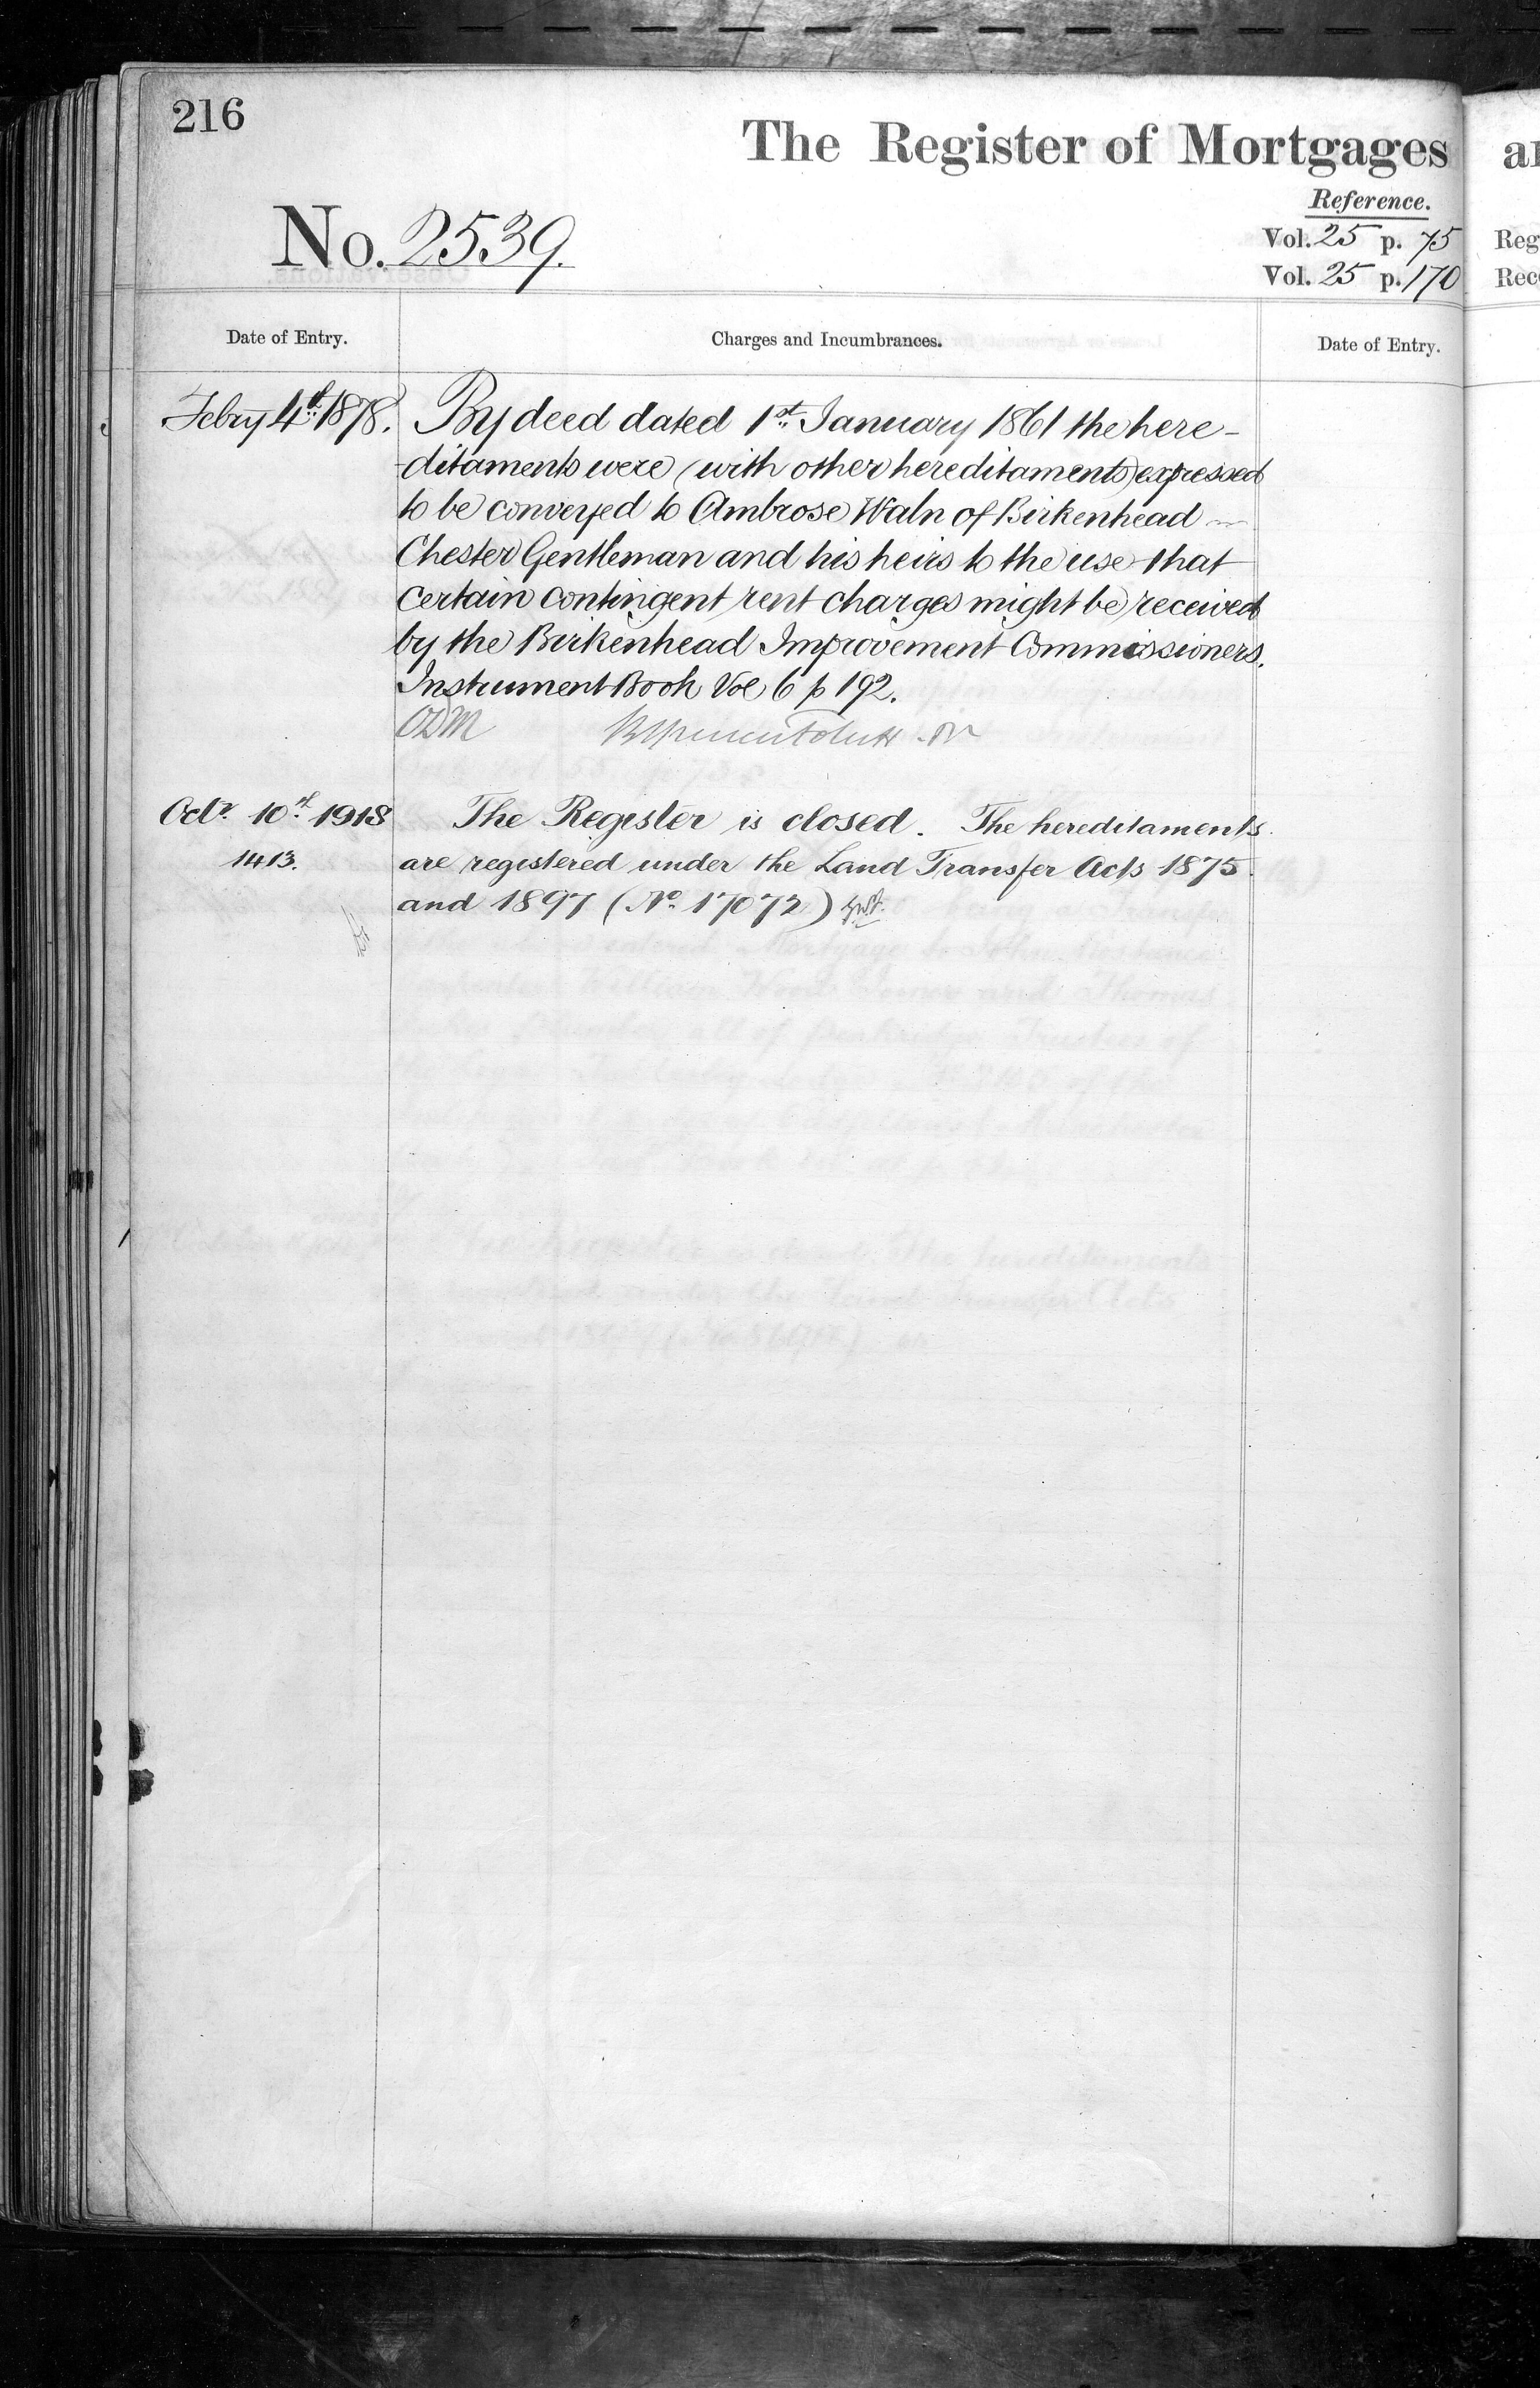 216
The Register of Mortgages
Reference.
No. 2539.
Vol. 25 p. 75
Vol. 25 p. 170
Reg
Rec
Date of Entry.
Charges and Incumbrances.
Date of Entry.
Febry 4th 1878.
By deed dated 1st January 1861 the here-
-ditaments were (with other hereditaments) expressed
to be conveyed to Ambrose Waln of Birkenhead
Chester Gentleman and his heirs to the use that
certain contingent rent charges might be received
by the Birkenhead Improvement Commissioners.
Instrument Book Vol 6 p 192.
ODM
Octr. 10th 1918
The Register is closed. The hereditaments
1413.
are registered under the Land Transfer Acts 1875
and 1897 (No. 17072)